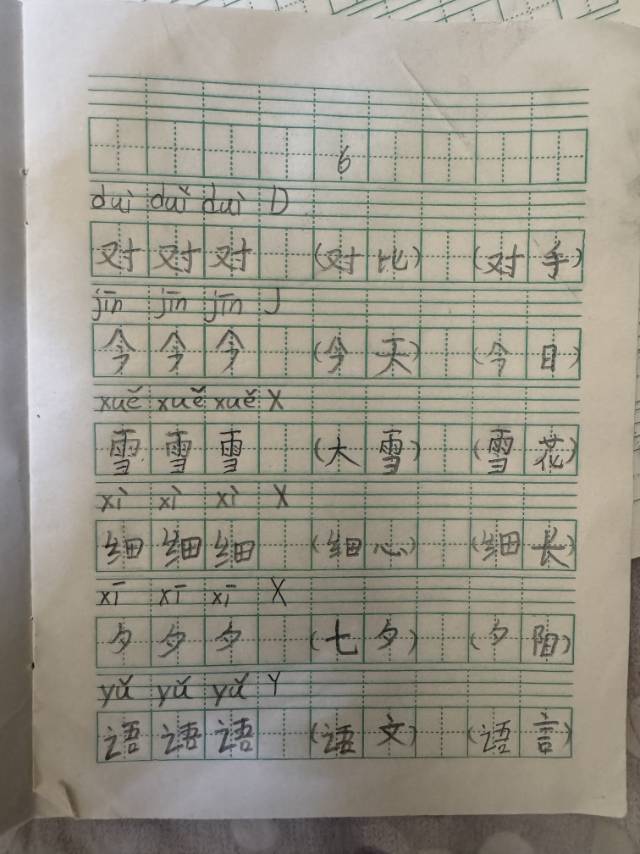 6
duì duǐ duì D
对 对 对 (对 比) (对 手)
jīn jīn jīn J
今 今 今 (今 天) (今 日)
xuě xuě xuě X
雪 雪 雪 (大 雪) (雪 花)
xì xì xì X
细 细 细 (细 心) (细 长)
xī xī xī X
夕 夕 夕 (七 夕) (夕 阳)
yǔ yǔ yǔ Y
语 语 语 (语 文) (语 言)